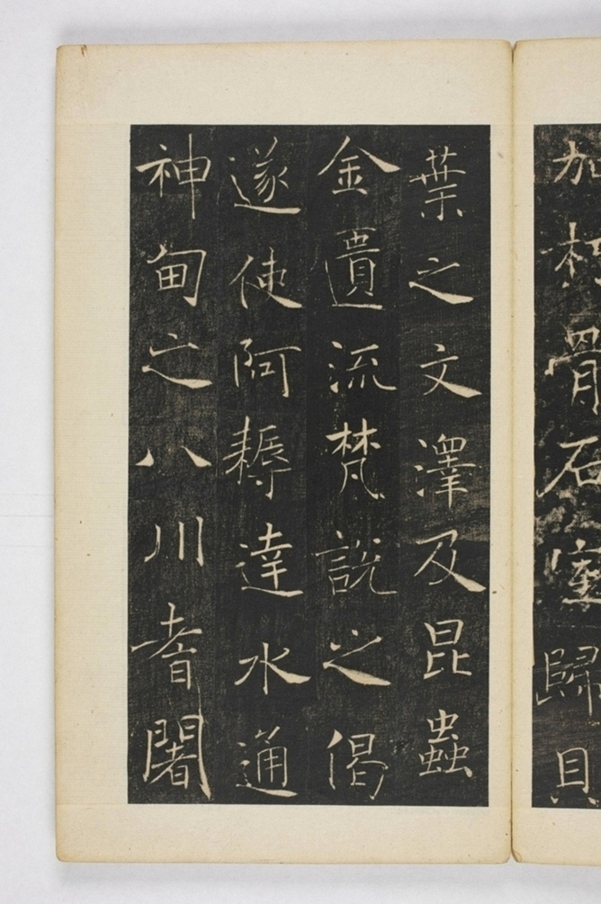 加朽骨石室歸貝
葉之文澤及昆蟲
金匱流梵說之偈
遂使阿耨達水通
神甸之八川耆闍